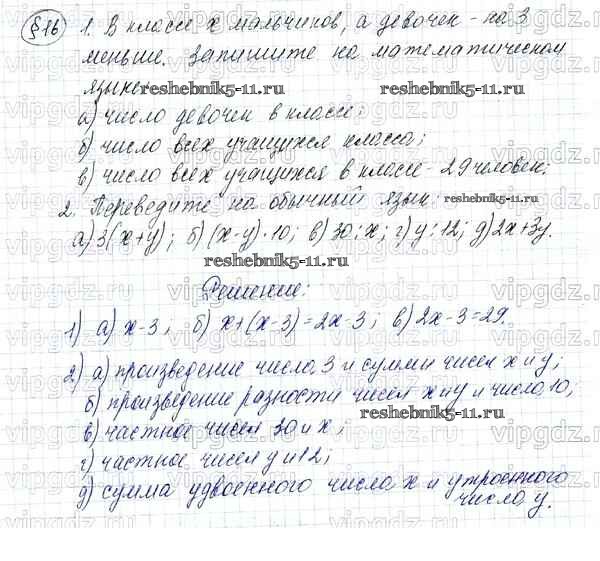 §16 1. В классе x мальчиков, а девочек - на 3
меньше. Запишите на математическом
языке:
reshebnik5-11.ru reshebnik5-11.ru
а) число девочек в классе;
б) число всех учащихся класса;
в) число всех учащихся в классе - 29 человек;
2. Переведите на обычный язык:
reshebnik5-11.ru
а) 3(x+y); б) (x-y)·10; в) 30:x; г) y:12; д) 2x+3y.
reshebnik5-11.ru
Решение:
1) а) x-3; б) x+(x-3)=2x-3; в) 2x-3=29.
2) а) произведение числа 3 и суммы чисел x и y;
б) произведение разности чисел x и y и числа 10;
reshebnik5-11.ru
в) частное чисел 30 и x;
г) частное чисел y и 12;
д) сумма удвоенного числа x и утроенного
числа y.
vipgdz